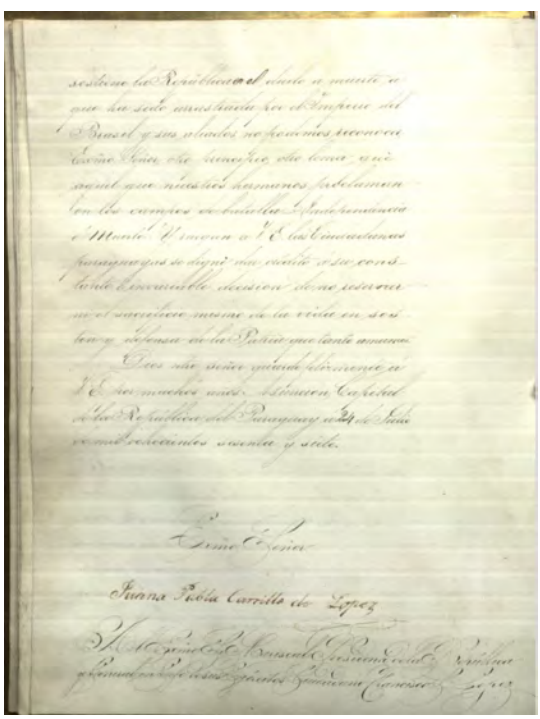 sostiene la República en el duelo a muerte a
que ha sido arrastrada por el Imperio del
Brasil y sus aliados no podemos reconocer
Exmo. Señor otro principio, otro lema que
aquel que nuestros hermanos proclaman
en los campos de batalla: Independencia
ó Muerte. Y ruegan a V E. las Ciudadanas
paraguayas se digne dar crédito a su cons-
tante é invariable decision de no reservar
ni el sacrificio mismo de la vida en sos-
ten y defensa de la Patria que tanto amamos.
Dios ntro señor guarde felizmente a
V E. por muchos años. Asuncion Capital
de la República del Paraguay a 24 de Julio
de mil ochocientos sesenta y siete.
Exmo. Señor
Juana Pabla Carrillo de Lopez
Exmo Señor Mariscal Presidente de la República
y General en Gefe de sus Egércitos Ciudadano Francisco S. Lopez